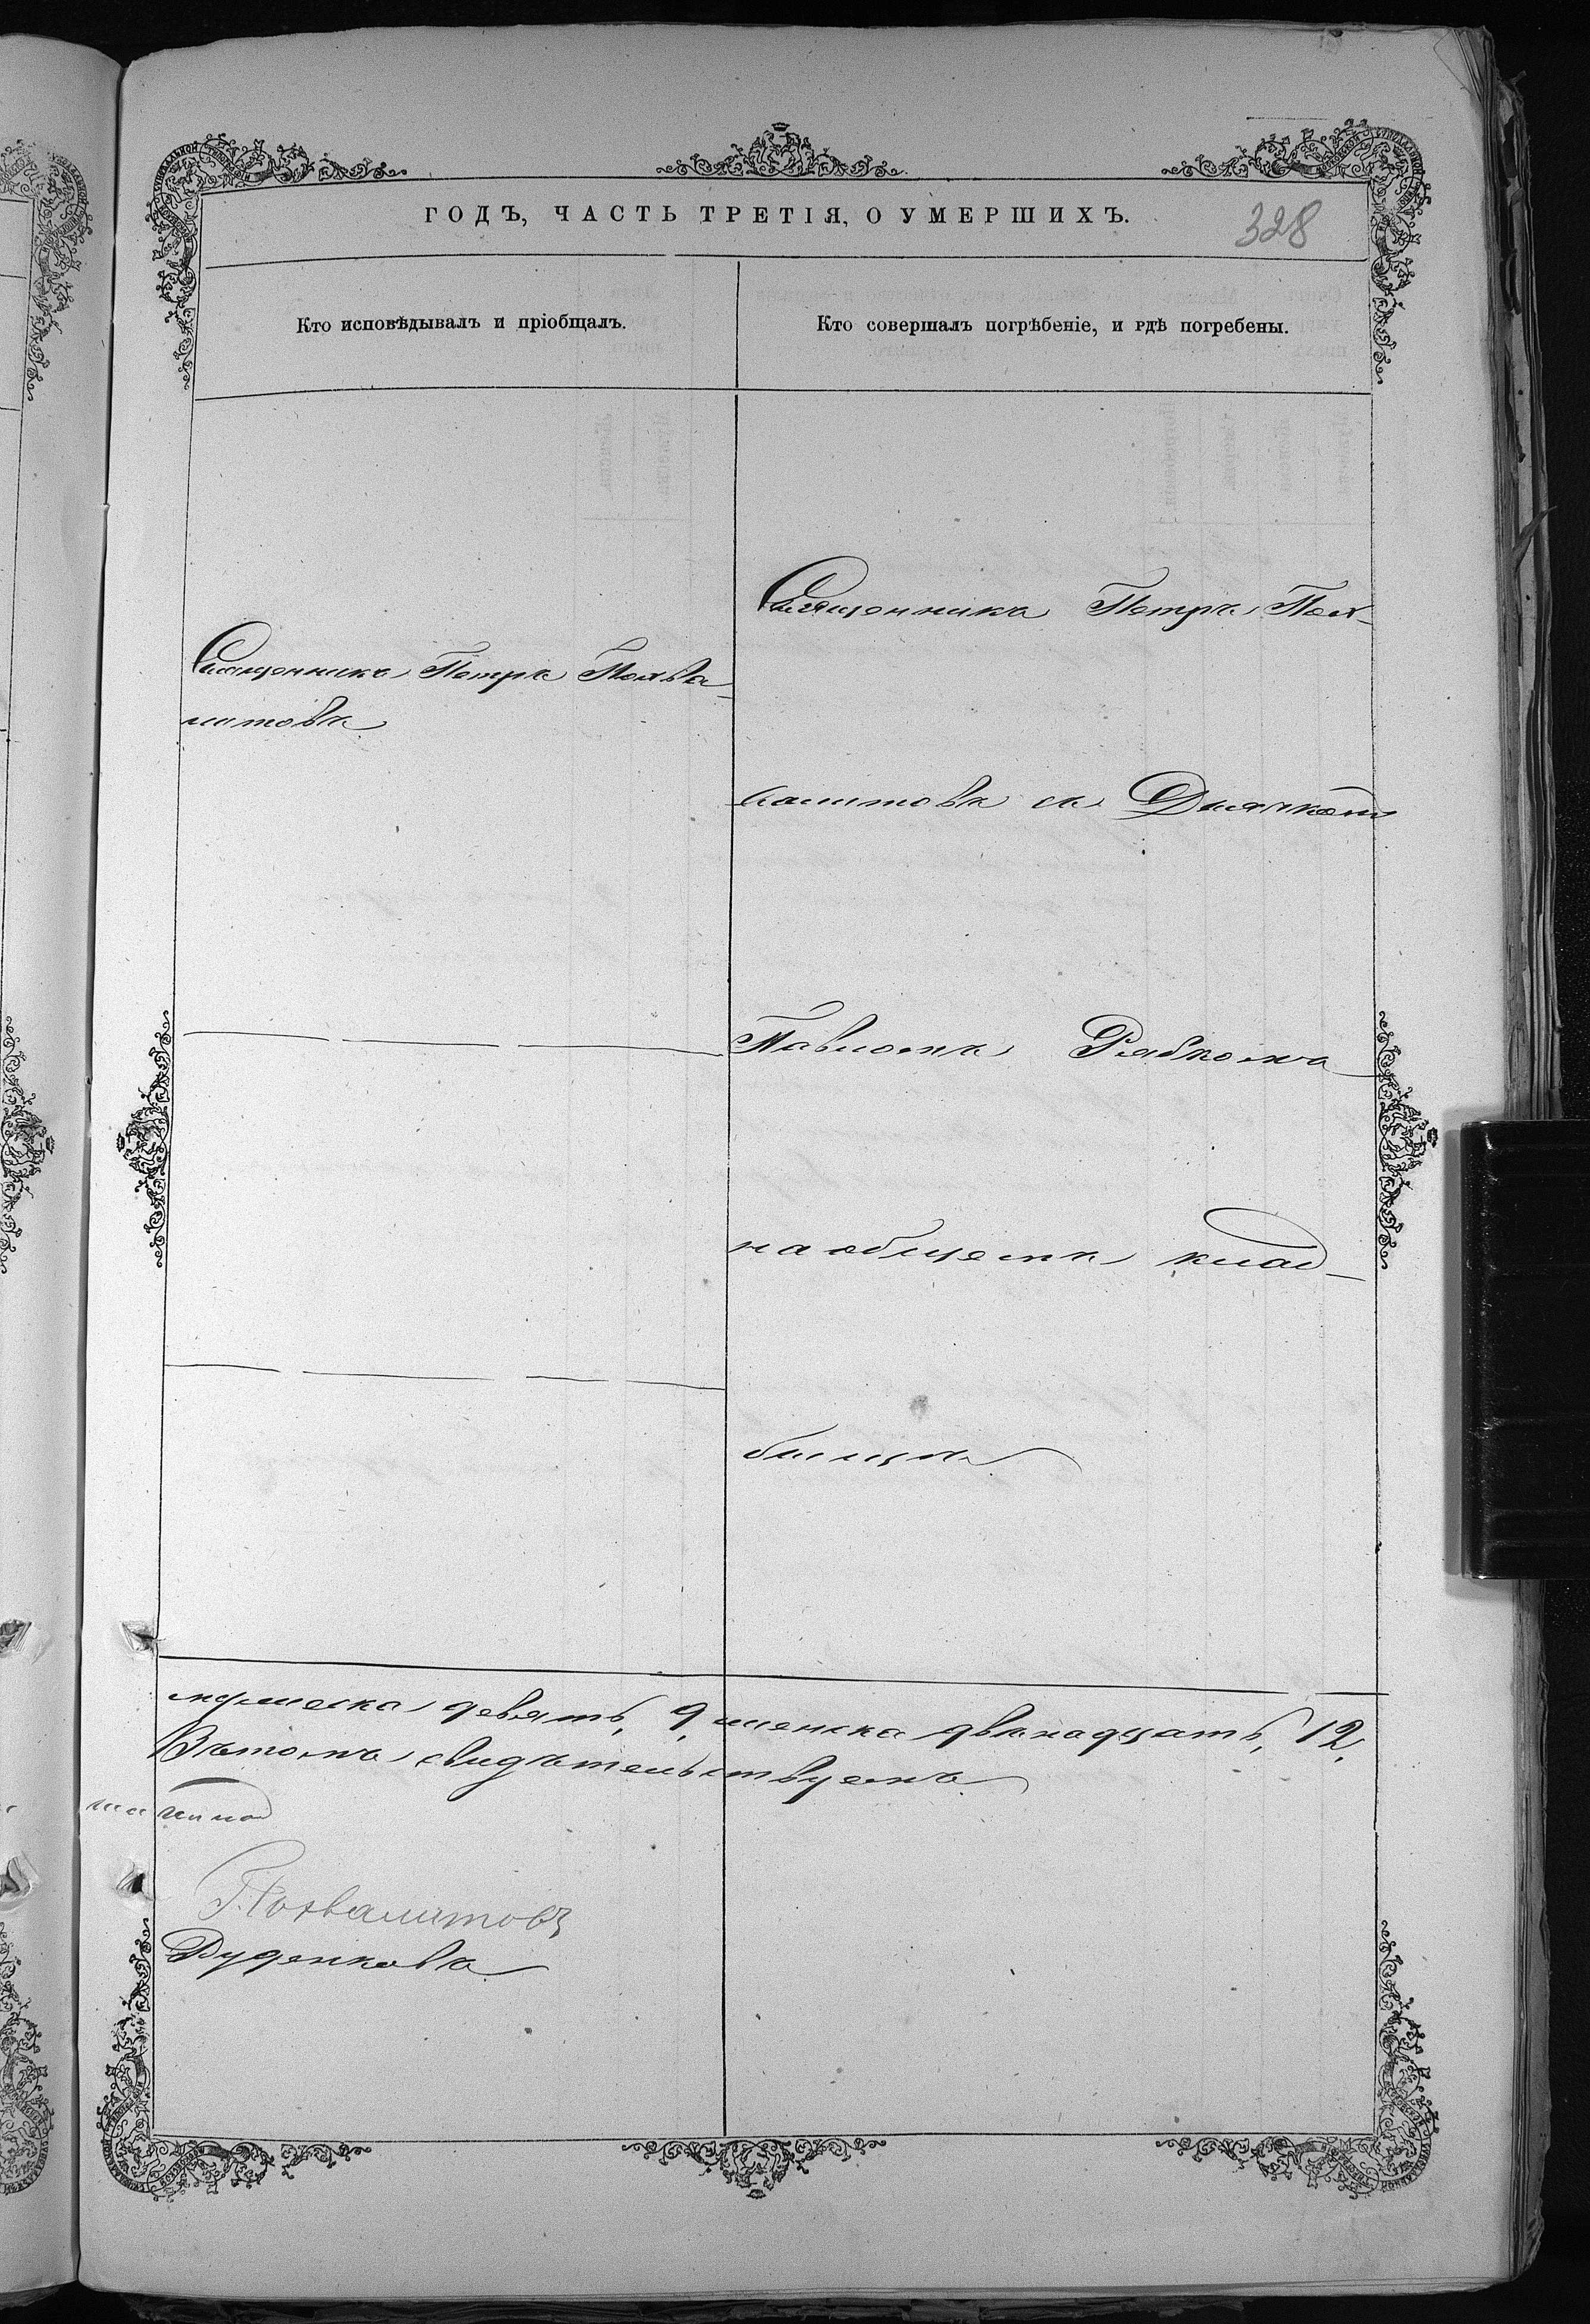 ГОДЪ, ЧАСТЬ ТРЕТІЯ, О УМЕРШИХЪ.
328
Кто исповѣдывалъ и пріобщалъ.
Кто совершалъ погрѣбеніе, и гдѣ погребены.
Священникъ Петръ Похва-
литовъ
Священникъ Петръ Пох-
валитовъ съ Дьячкомъ
Павломъ Рябкомъ
на общемъ клад-
бищѣ
мужеска девять, 9, женска двѣнадцать, 12.
Въ томъ свидѣтельствуемъ
Похвалитовъ
Руденковъ